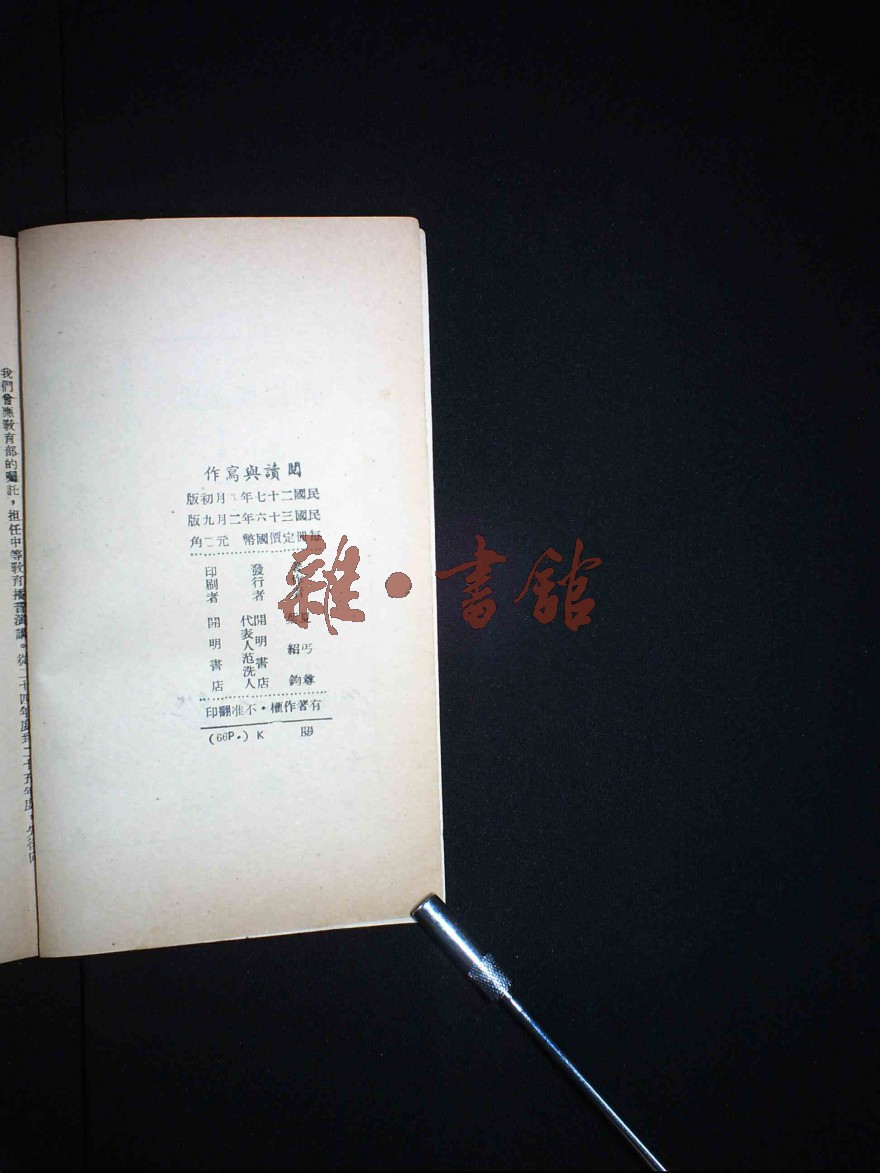 閱讀與寫作
民國二十七年 月初版
民國三十六年二月九版
每冊定價國幣 元二角
發行者
開明書店
代表人范洗人
印刷者
開明書店
夏丏尊
紹鈞
有著作權・不准翻印
(66P.) K
我們曾應教育部的囑託，担任中等教育播音演講。從二十四年度到二十五年度，
雜・書館